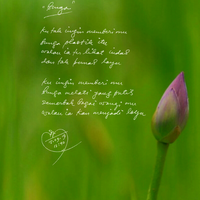 "Bunga"
Ku tak ingin memberimu
Bunga plastik itu
walau ia terlihat indah
dan tak pernah layu
Ku ingin memberimu
Bunga melati yang putih
semerbak bagai wangi mu
walau ia kan menjadi layu